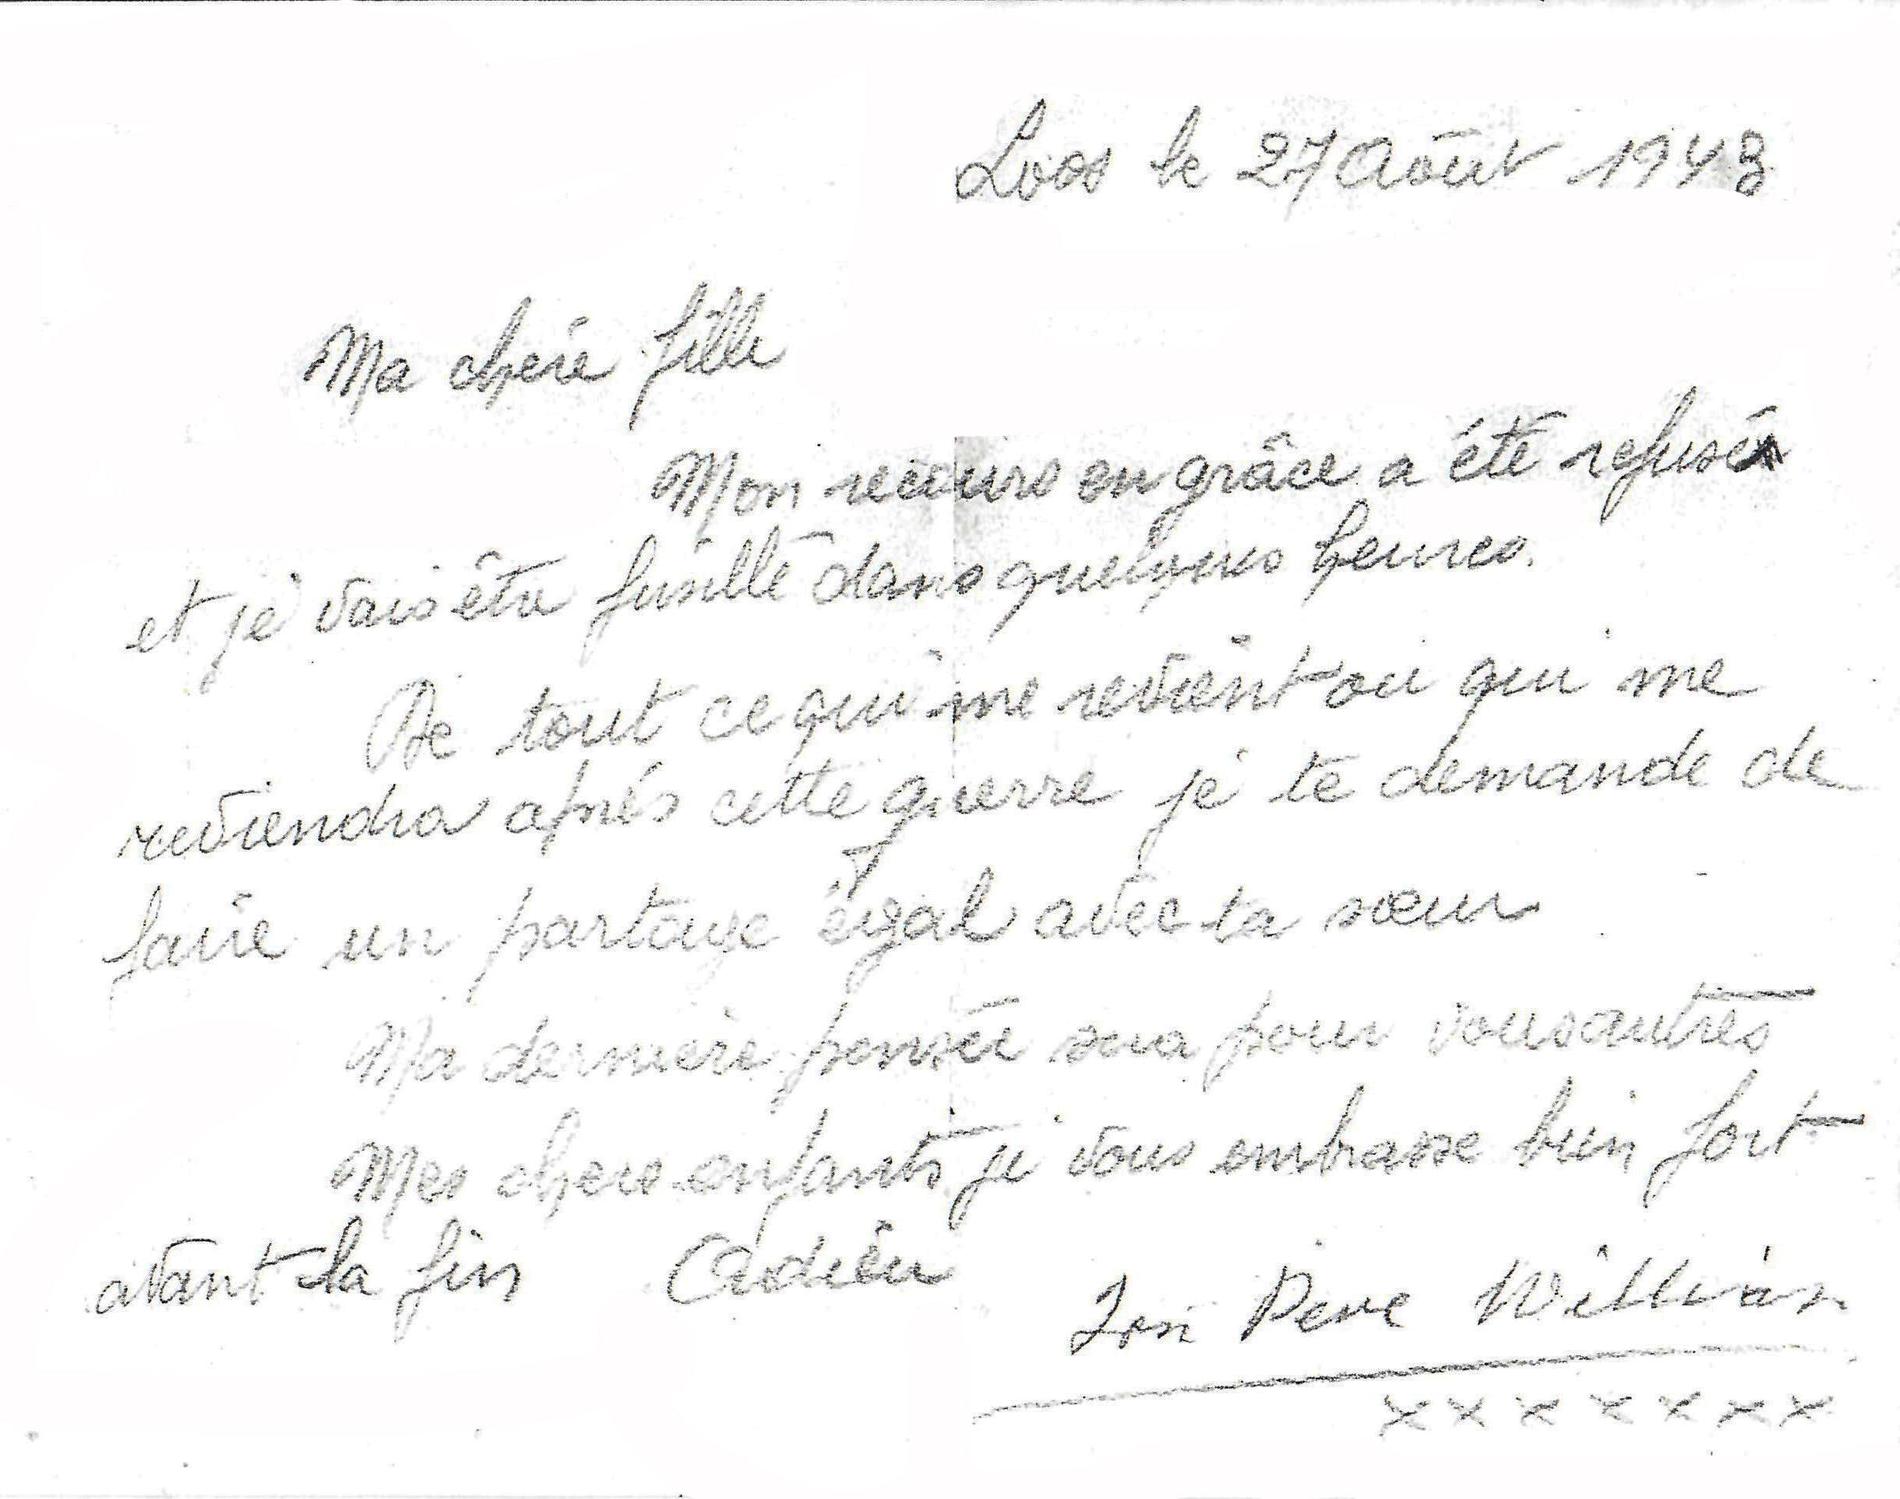 Loos le 27 Août 1943
Ma chère fille
Mon recours en grâce a été refusé
et je vais être fusillé dans quelques heures.
De tout ce qui me revient ou qui me
reviendra après cette guerre je te demande de
faire un partage égal avec ta sœur
Ma dernière pensée sera pour vous autres
Mes chers enfants je vous embrasse bien fort
avant la fin Adieu
Ton Père William
x x x x x x x